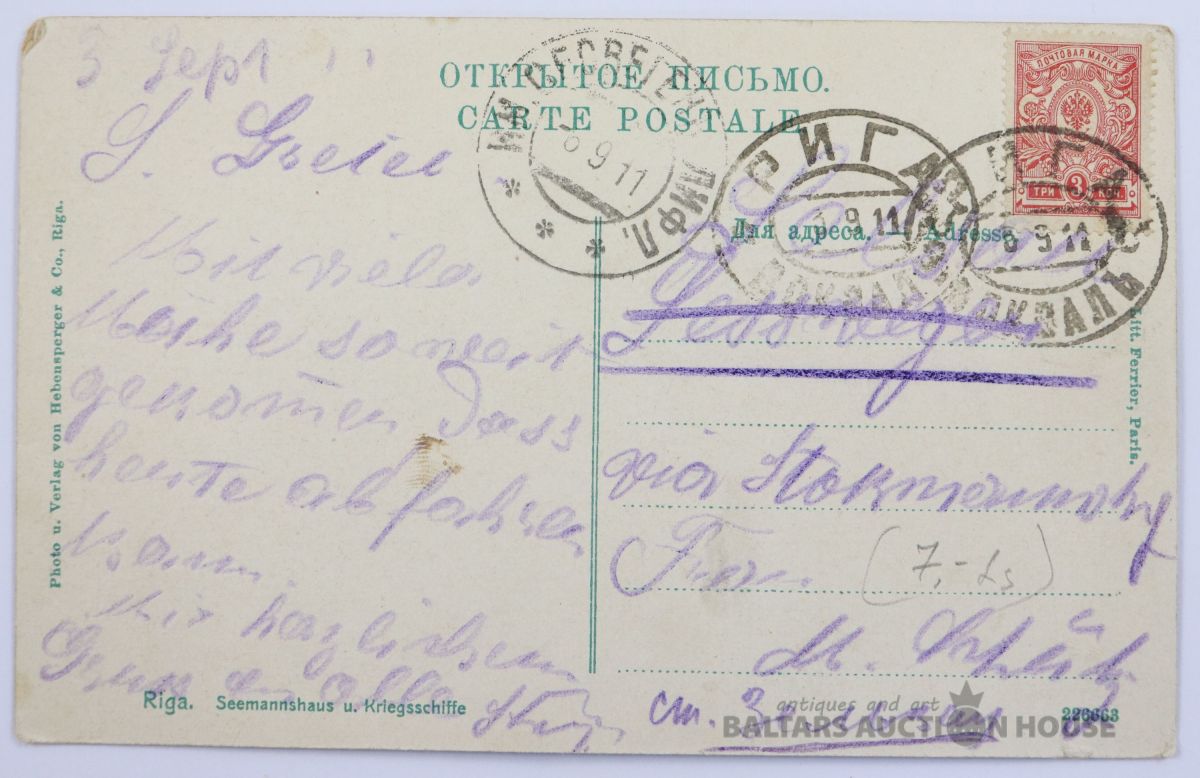 3 Sept 11
S. Gretel
Mit viele
Mühe so weit
genomen dass
heute abfahren
kann.
Mit herzlichem
Gruss an alle
ОТКРЫТОЕ ПИСЬМО.
CARTE POSTALE
ЛИФЛ.
6 9 11
РИГА
ВОКЗАЛЪ
3 9 11
РИГА
ВОКЗАЛЪ
3 9 11
ПОЧТОВАЯ МАРКА
ТРИ 3 КОП.
Для адреса. — Adresse
via Stokmannshof
Frau
(7,- Ls)
M.
ст.
Photo u. Verlag von Hebensperger & Co., Riga.
Litt. Ferrier, Paris.
Riga. Seemannshaus u. Kriegsschiffe
226663
antiques and art
BALTARS AUCTION HOUSE